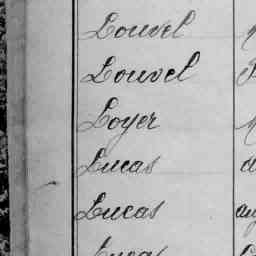 Louvel
Louvel
Loyer
Lucas
Lucas
Lucas